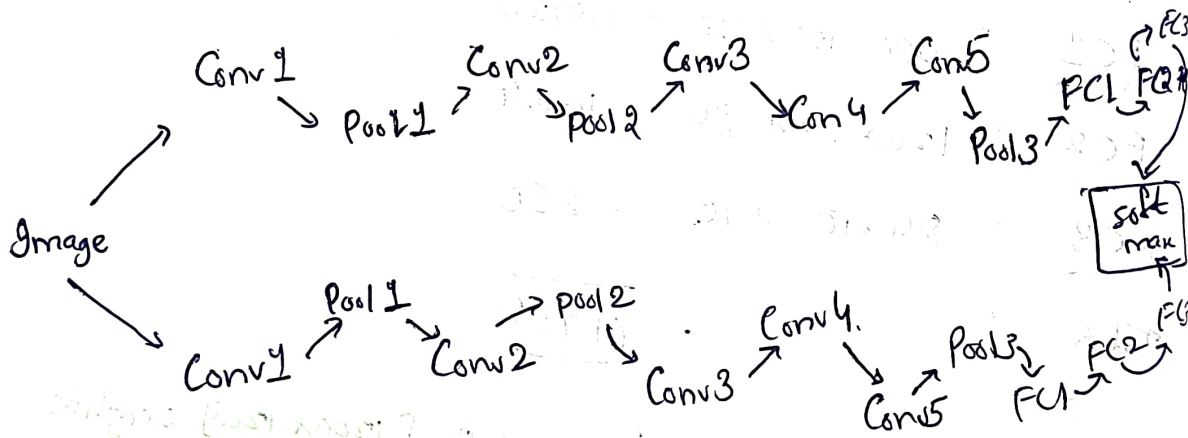 Image
Conv1
Pool1
Conv2
Pool2
Conv3
Con4
Conv5
Pool3
FC1
FC2
FC3
soft
max
Conv1
Pool1
Conv2
pool2
Conv3
Conv4.
Conv5
Pool3
FC1
FC2